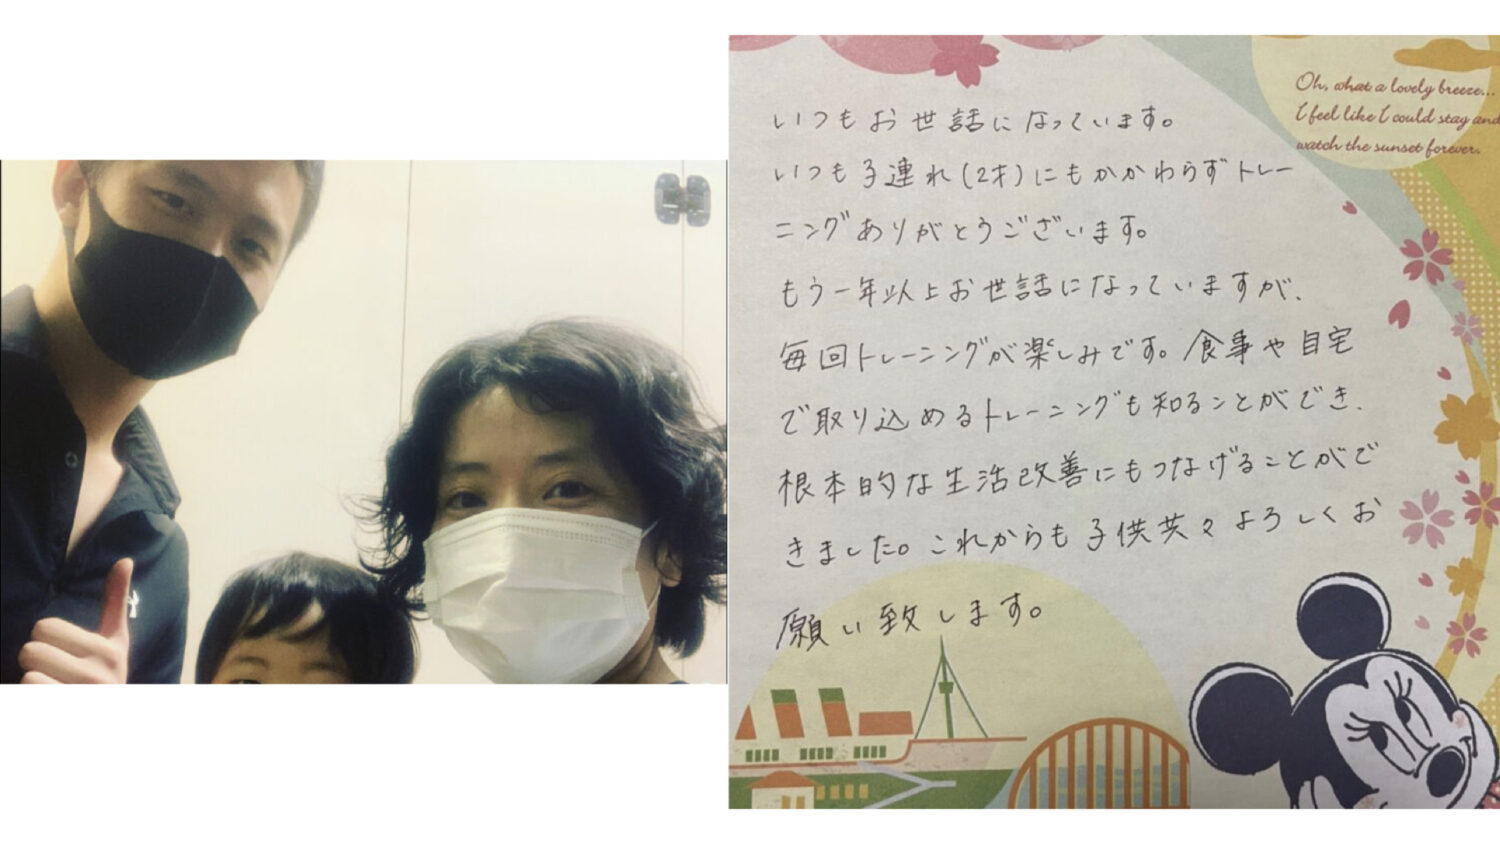 Oh, what a lovely breeze...
I feel like I could stay and
watch the sunset forever.
いつもお世話になっています。
いつも子連れ(2才)にもかかわらずトレー
ニングありがとうございます。
もう一年以上お世話になっていますが、
毎回トレーニングが楽しみです。食事や自宅
で取り込めるトレーニングも知ることができ、
根本的な生活改善にもつなげることがで
きました。これからも子供共々よろしくお
願い致します。